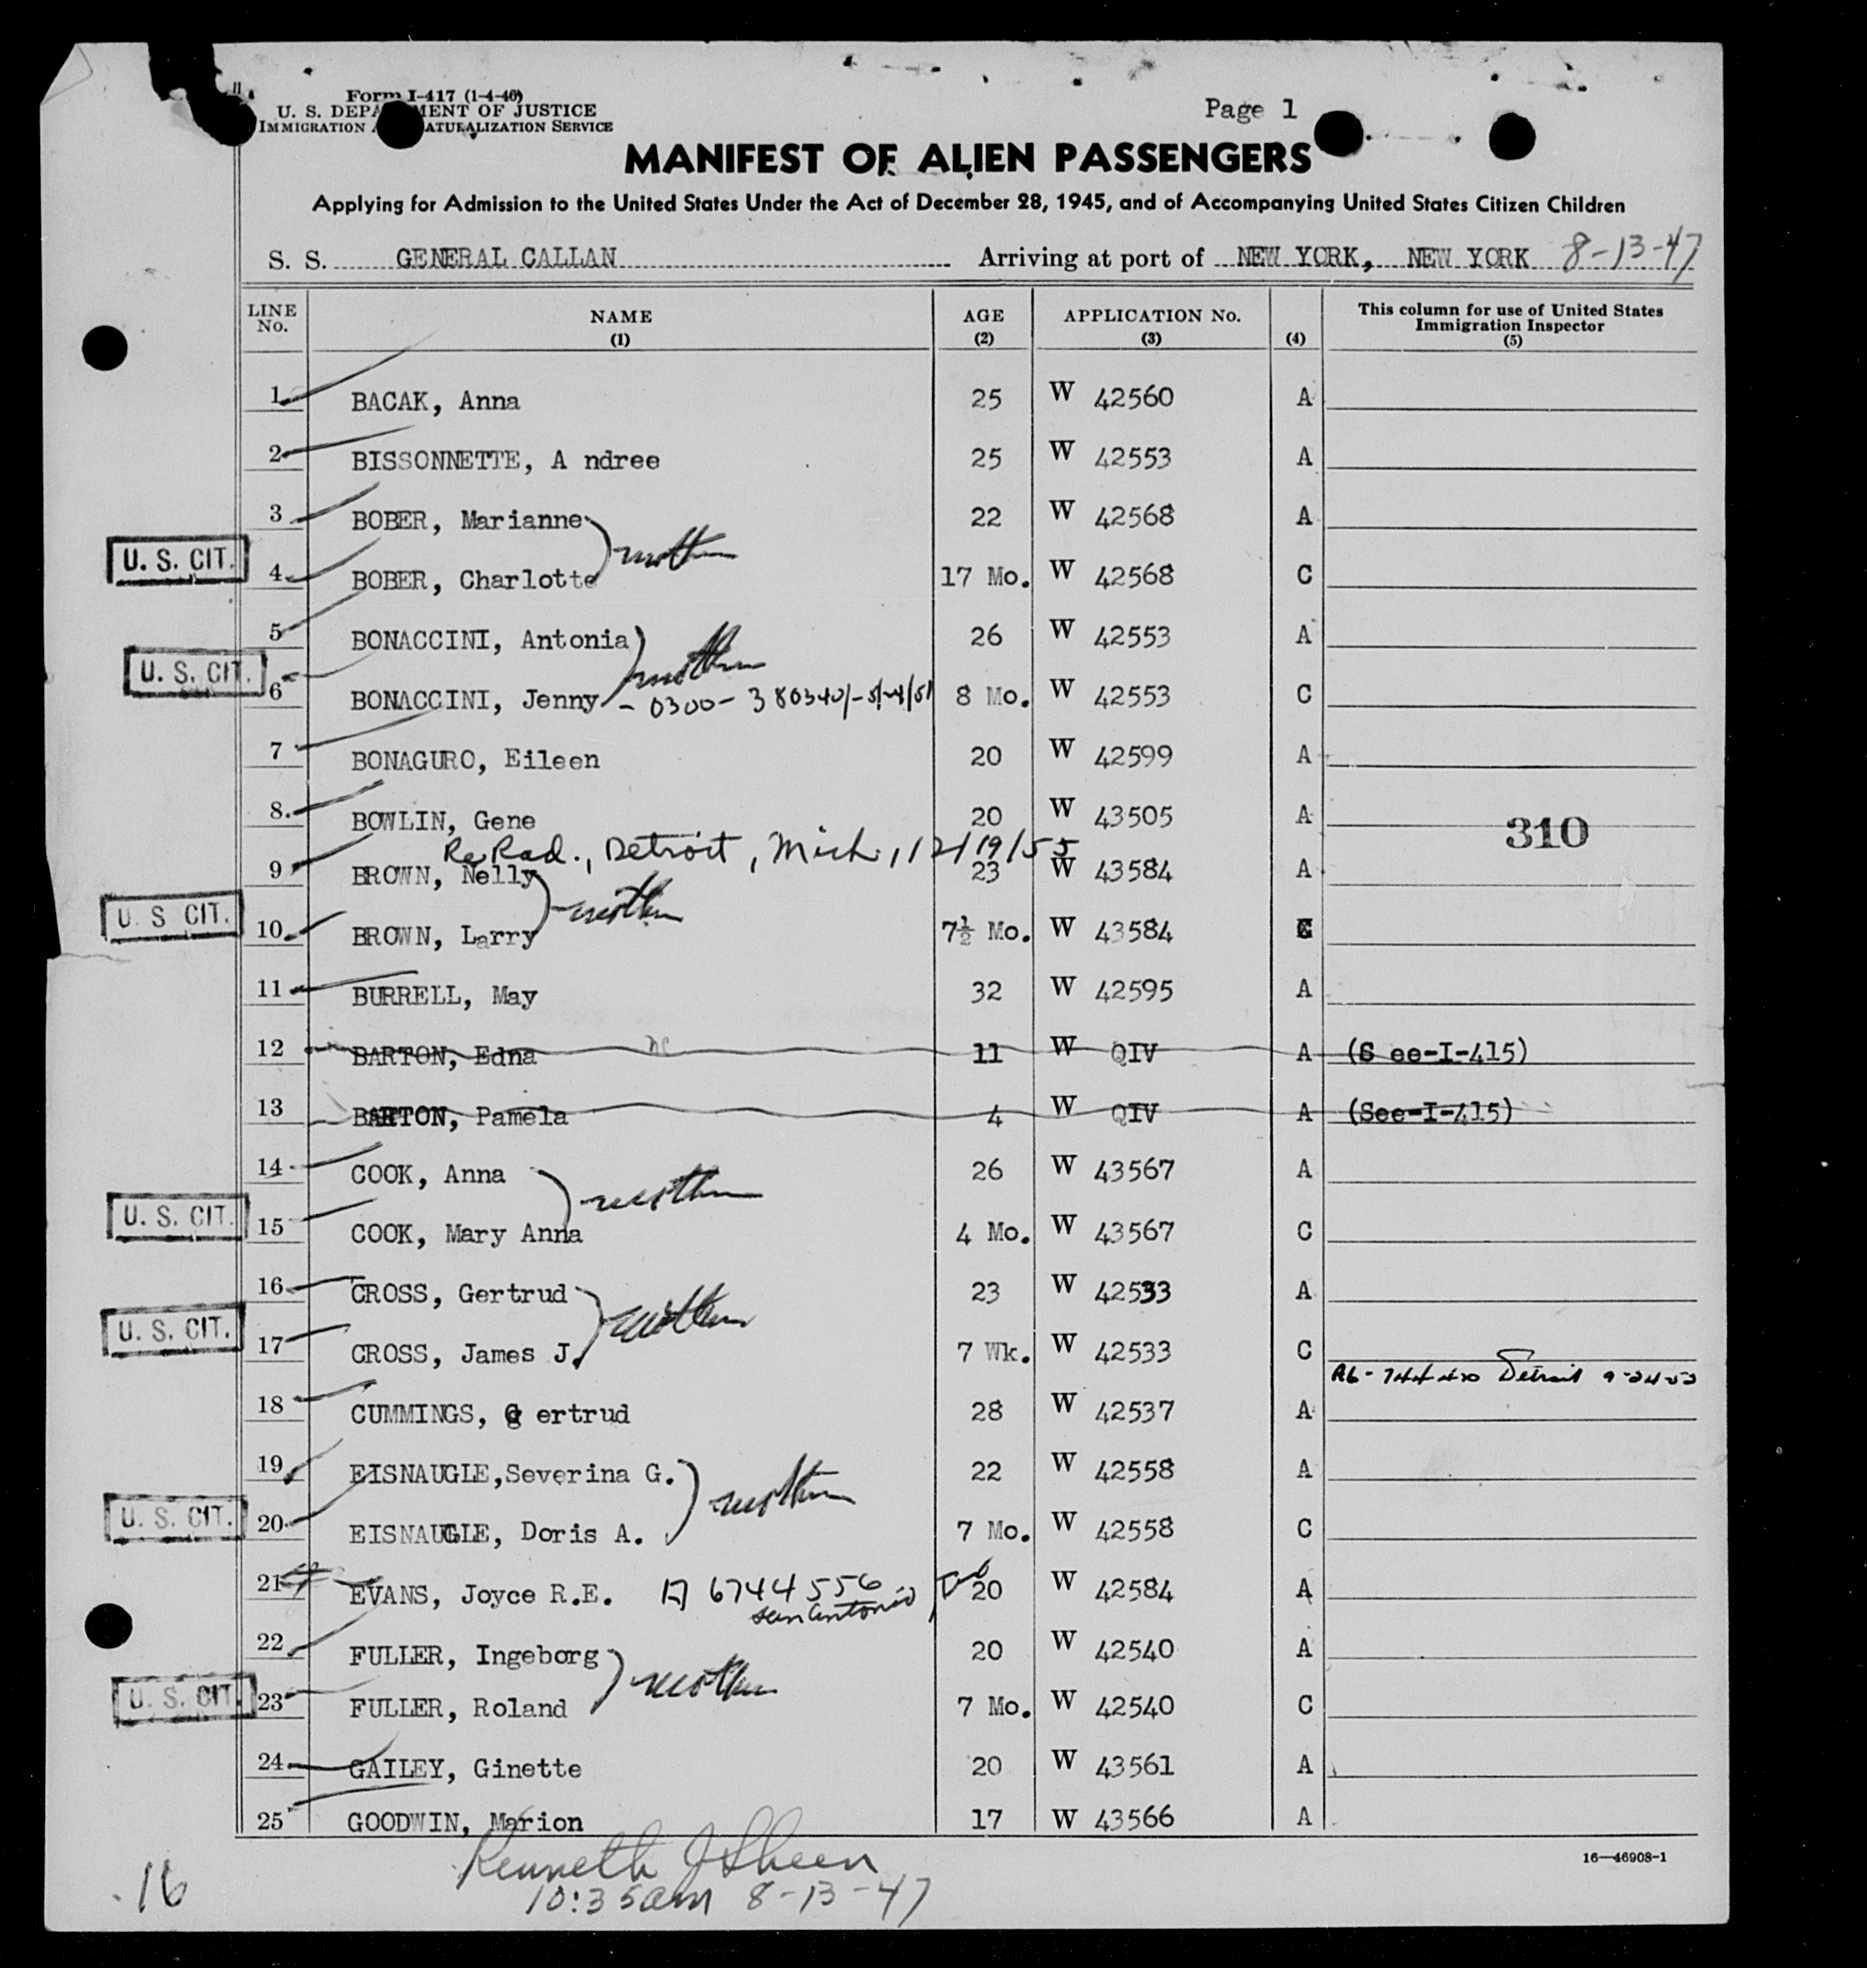 Form I-417 (1-4-46)
U. S. DEPA MENT OF JUSTICE
IMMIGRATION A ATURALIZATION SERVICE
Page 1
MANIFEST OF ALIEN PASSENGERS
Applying for Admission to the United States Under the Act of December 28, 1945, and of Accompanying United States Citizen Children
S. S. GENERAL CALLAN Arriving at port of NEW YORK, NEW YORK 8-13-47
LINE No. NAME (1) AGE (2) APPLICATION No. (3) (4) This column for use of United States Immigration Inspector (5)
1 BACAK, Anna 25 W 42560 A
2 BISSONNETTE, A ndree 25 W 42553 A
3 BOBER, Marianne 22 W 42568 A
mother
U. S. CIT. 4 BOBER, Charlotte 17 Mo. W 42568 C
5 BONACCINI, Antonia 26 W 42553 A
mother
U. S. CIT. 6 BONACCINI, Jenny - 0300- 8 Mo. W 42553 C
7 BONAGURO, Eileen 20 W 42599 A
8 BOWLIN, Gene 20 W 43505 A 310
Re Rad., Detroit, Mich., 12/19/55
9 BROWN, Nelly 23 W 43584 A
mother
U. S CIT. 10 BROWN, Larry 7½ Mo. W 43584 C
11 BURRELL, May 32 W 42595 A
12 BARTON, Edna 11 W QIV A (S ee-I-415)
13 BARTON, Pamela 4 W QIV A (See-I-415)
14 COOK, Anna 26 W 43567 A
mother
U. S. CIT. 15 COOK, Mary Anna 4 Mo. W 43567 C
16 CROSS, Gertrud 23 W 42533 A
mother
U. S. CIT. 17 CROSS, James J. 7 Wk. W 42533 C
Detroit
18 CUMMINGS, G ertrud 28 W 42537 A
19 EISNAUGLE,Severina G. 22 W 42558 A
mother
U. S. CIT. 20 EISNAUGLE, Doris A. 7 Mo. W 42558 C
21 EVANS, Joyce R.E. A 6744556 20 W 42584 A
San Antonio
22 FULLER, Ingeborg 20 W 42540 A
mother
U. S. CIT. 23 FULLER, Roland 7 Mo. W 42540 C
24 GAILEY, Ginette 20 W 43561 A
25 GOODWIN, Marion 17 W 43566 A
16—46908-1
Kenneth J Sheen
10:35am 8-13-47
16